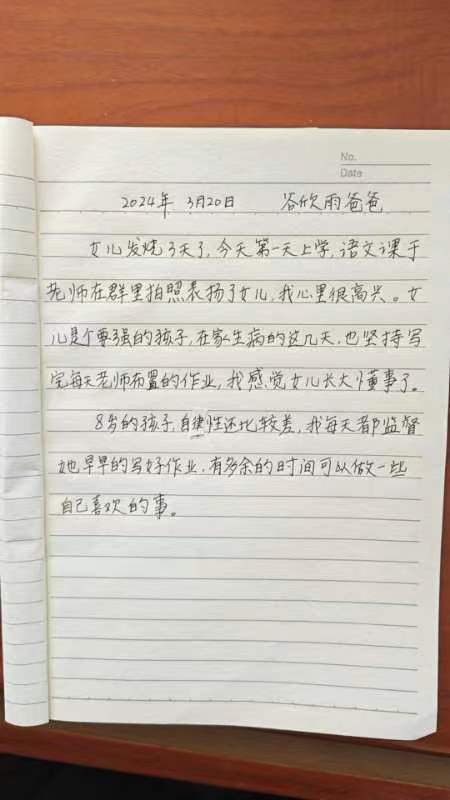 No.
Date
2024年 3月20日 谷欣雨爸爸
女儿发烧了天了,今天第一天上学,语文课于
老师在群里拍照表扬了女儿,我心里很高兴。女
儿是个要强的孩子,在家生病的这几天,也坚持写
完每天老师布置的作业,我感觉女儿长大懂事了。
8岁的孩子,自律性还比较差,我每天都监督
她早早的写好作业,有多余的时间可以做一些
自己喜欢的事。